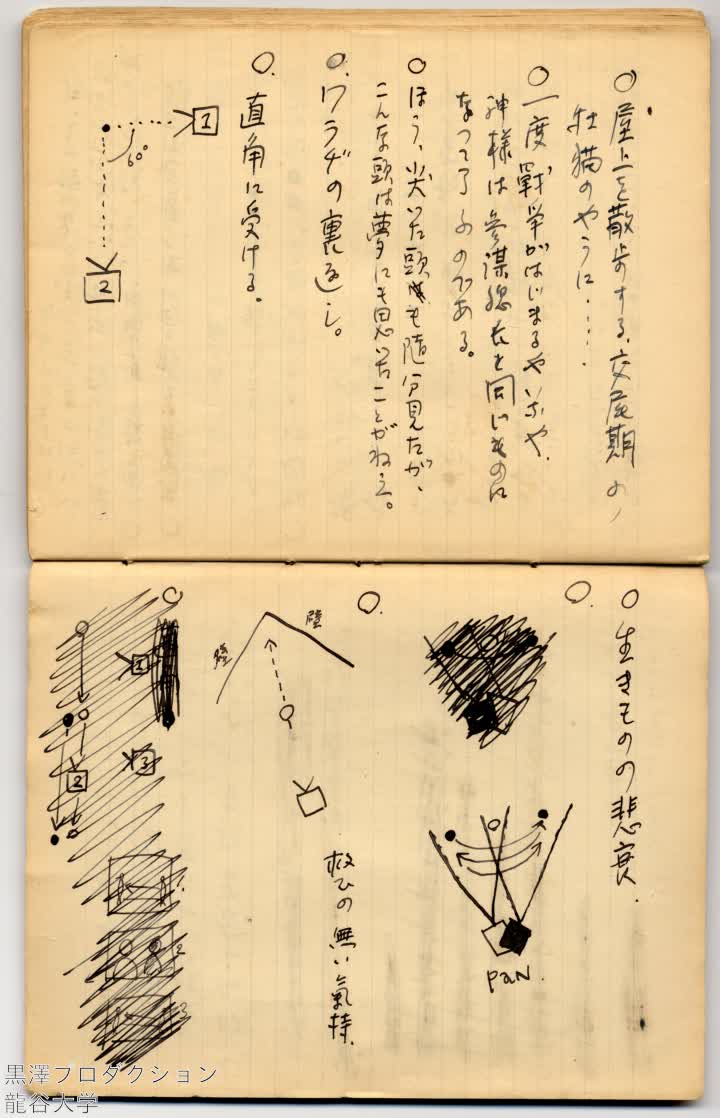 ○屋上を散歩する、交尾期の
牡猫のやうに……
○一度戰爭がはじまるやいなや、
神様は参謀総長と同じものに
なつて了ふのである。
○ほう、尖いた頭も随分見たが、
こんな頭は夢にも思いたことがねえ。
○ワラヂの裏返し。
○直角に受ける。
1
60°
2
○生きものの悲哀
○
PAN.
○
壁
壁
救ひの無い氣持
○
1
2
3
1.
2
3
黒澤プロダクション
龍谷大学